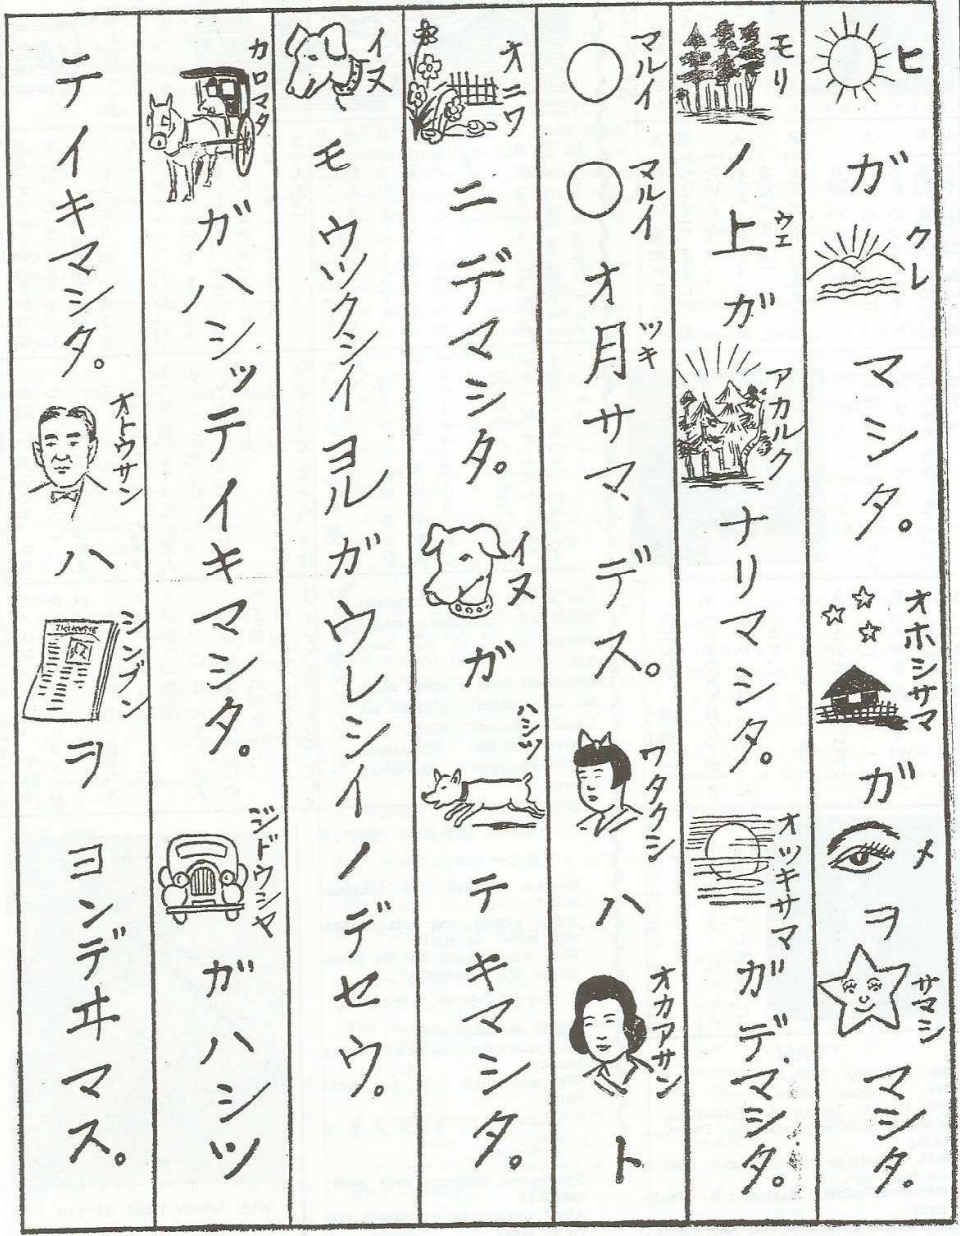 ヒ ガ クレ マシタ。 オホシサマ ガ メ ヲ サマシ マシタ。
モリ ノ 上 ウエ ガ アカルク ナリマシタ。 オツキサマ ガ デマシタ。
マルイ マルイ オ月 ツキ サマ デス。 ワタクシ ハ オカアサン ト
オニワ ニ デマシタ。 イヌ ガ ハシツ テ キマシタ。
イヌ モ ウツクシイ ヨル ガ ウレシイ ノ デセウ。
カロマタ ガ ハシッテ イキマシタ。 ジドウシヤ ガ ハシツ
テ イキマシタ。 オトウサン ハ シンブン ヲ ヨンデ ヰマス。